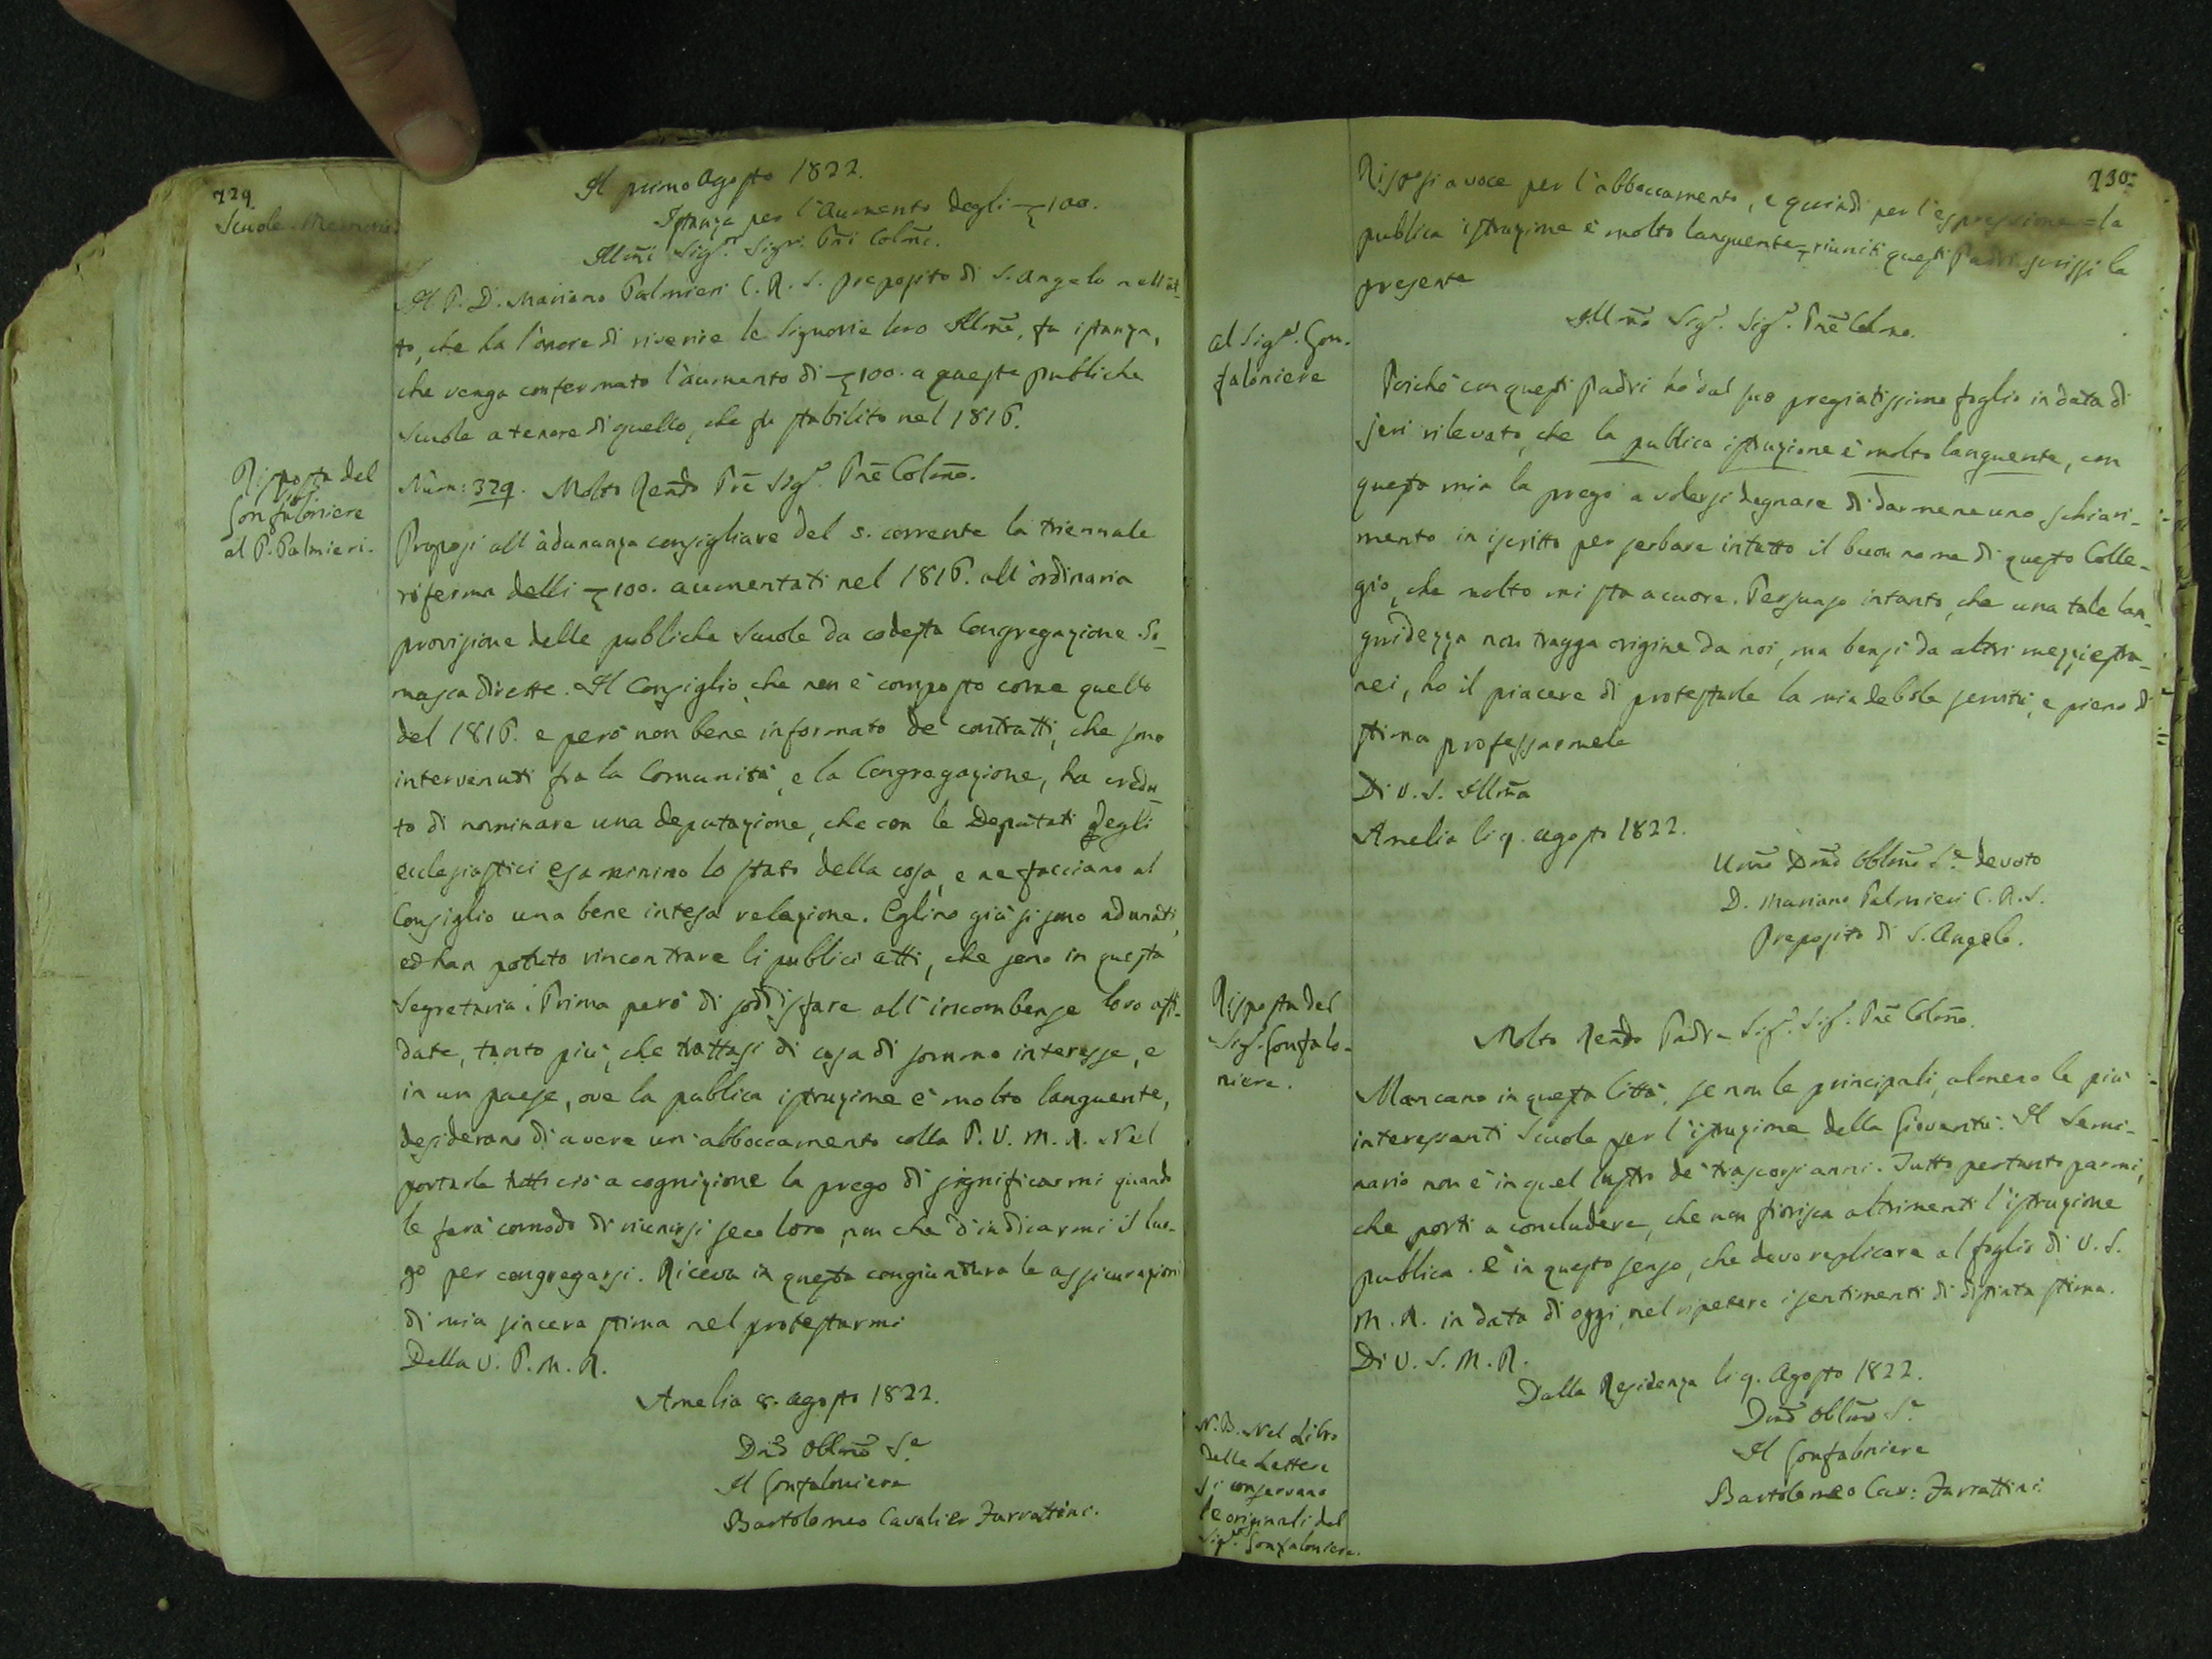 729
Scuole. Memorie.
Il primo Agosto 1822.
Istanza per l'Aumento degli 100.
Illmi Sigri. Sigri. Pni Colmi.
Il P. D. Mariano Palmieri C. R. S. preposito di S. Angelo nell'at-
to, che ha l'onore di riverire le Signorie loro Illme, fa istanza,
che venga confermato l'aumento di 100. a queste pubbliche
Scuole a tenore di quello, che fu stabilito nel 1816.
Risposta del
Sig.
Gonfaloniere
al P. Palmieri.
Num: 329. Molto Rendo Pre Sigr. Pne Colmo.
Proposi all'adunanza consigliare del 5. corrente la triennale
riferma delli 100. aumentati nel 1816. all'ordinaria
provisione delle pubbliche Scuole da codesta Congregazione So-
masca dirette. Il Consiglio, che non è composto come quello
del 1816. e però non bene informato de' contratti, che sono
intervenuti fra la Comunità, e la Congregazione, ha credu-
to di nominare una deputazione, che con le Deputati degli
ecclesiastici esaminino lo stato della cosa, e ne facciano al
Consiglio una bene intesa relazione. Eglino già si sono adunati,
ed han potuto rincontrare li publici atti, che sono in questa
Segretaria. Prima però di soddisfare all'incombense loro affi-
date, tanto più, che trattasi di cosa di sommo interesse, e
in un paese, ove la publica istruzione è molto languente,
desiderano di avere un'abboccamento colla P. V. M. R. Nel
portarle tutto ciò a cognizione la prego di significarmi quando
le farà comodo di riunirsi seco loro, non che d'indicarmi il luo-
go per congregarsi. Riceva in questa congiuntura le assicurazioni
di mia sincera stima nel protestarmi
Della V. P. M. R.
Amelia 8. agosto 1822.
Dmo Obblmo Se
Il Gonfaloniere
Bartolomeo Cavalier Farrattini.
730:
Risposi a voce per l'abboccamento, e quindi per l'espressione = la
publica istruzione è molto languente = riuniti questi Padri scrissi la
presente
Al Sigr. Gon-
faloniere
Illmo Sigr. Sigr. Pne Colmo.
Poichè con questi Padri hò dal suo pregiatissimo foglio in data di
jeri rilevato, che la publica istruzione è molto languente, con
questa mia la prego a volersi degnare di darmene uno schiari-
mento in iscritto per serbare intatto il buon nome di questo Colle-
gio, che molto mi sta a cuore. Persuaso intanto, che una tale lan-
guidezza non tragga origine da noi, ma bensì da altri mezzi estra-
nei, hò il piacere di protestarle la mia debole servitù, e pieno di
stima professarmele
Di V. S. Illma
Amelia li 9. agosto 1822.
Umo Dmo Obblmo Se devoto
D. Mariano Palmieri C. R. S.
Preposito di S. Angelo.
Risposta del
Sigr. Gonfalo-
niere.
Molto Rendo Padre Sigr. Sigr. Pne Colmo.
Mancano in questa Città, se non le principali, almeno le più
interessanti Scuole per l'istruzione della Gioventù. Il Semi-
nario non è in quel lustro de' trascorsi anni. Tutto pertanto parmi,
che porti a concludere, che non fiorisca altrimenti l'istruzione
publica. È in questo senso, che devo replicare al foglio di V. S.
M. R. in data di oggi, nel ripetere i sentimenti di distinta stima.
Di V. S. M. R.
Dalla Residenza li 9. Agosto 1822.
Dmo Obblmo Se
Il Gonfaloniere
Bartolomeo Cav: Farrattini.
N. B. Nel Libro
delle Lettere
si conservano
le originali del
Sigr. Gonfaloniere.